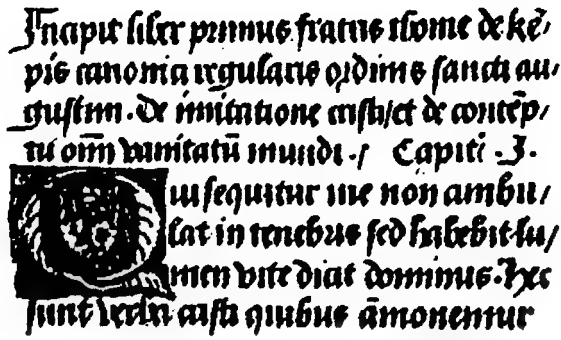 Incipit liber primus fratris thome de kē/
pis canonici regularis ordinis sancti au/
gustini. De imitatione cristi/et de contēp/
tu oīm vanitatū mundi. / Capitl .I.
Qui sequitur me non ambu/
lat in tenebris sed habebit lu/
men vite dicit dominus. Hec
sunt verba cristi quibus āmonemur